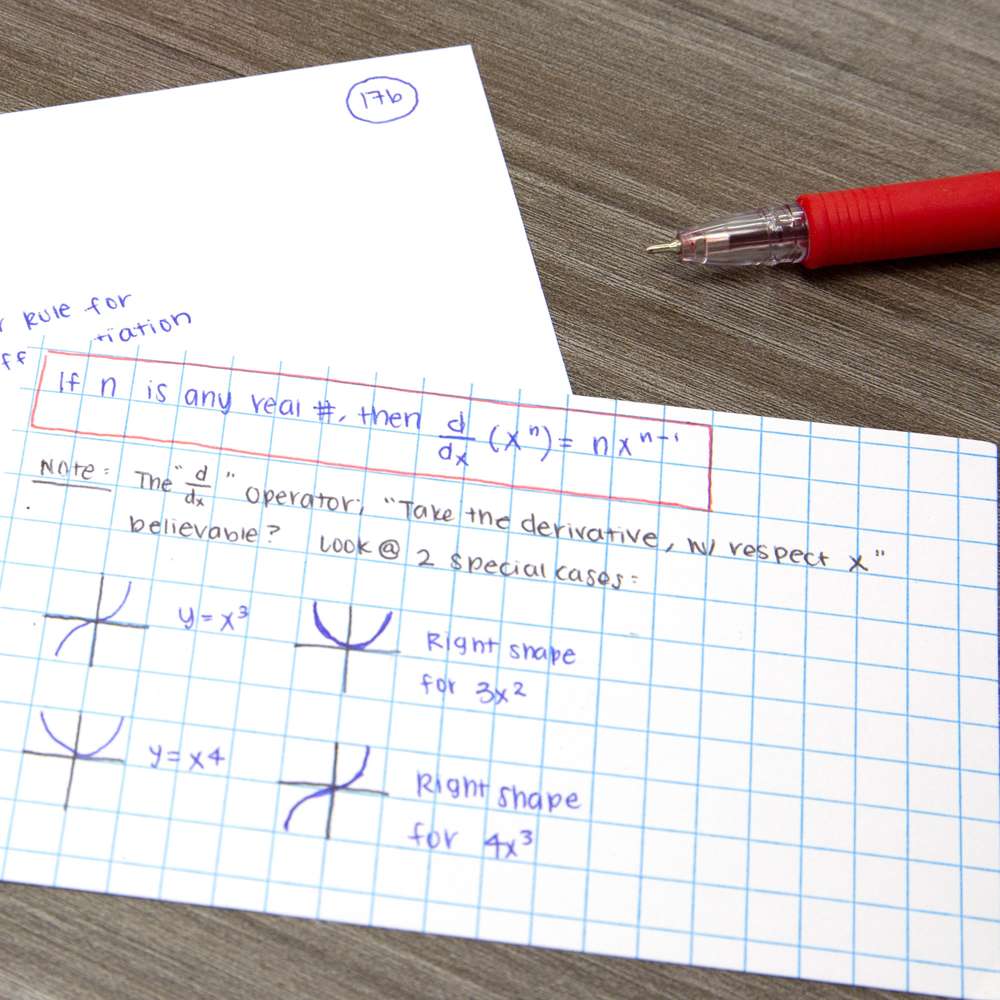 17b
Rule for
tiation
If n is any real #, then d/dx (xⁿ) = nxⁿ⁻¹
Note: The "d/dx" operator; "Take the derivative, w/ respect x"
believable? Look @ 2 special cases:
y = x³
Right shape
for 3x²
y = x4
Right shape
for 4x³